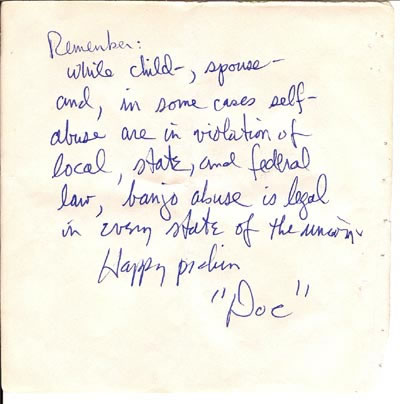 Remember:
while child-, spouse-
and, in some cases self-
abuse are in violation of
local, state, and federal
law, banjo abuse is legal
in every state of the union.
Happy pickin
"Doc"